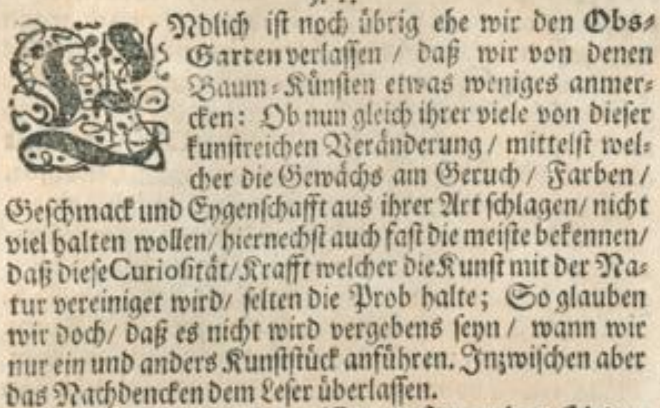 ENdlich ist noch übrig ehe wir den Obs⸗
Garten verlassen / daß wir von denen
Baum⸗Künsten etwas weniges anmer⸗
cken: Ob nun gleich ihrer viele von dieser
kunstreichen Veränderung / mittelst wel⸗
cher die Gewächs am Geruch / Farben /
Geschmack und Eygenschafft aus ihrer Art schlagen/ nicht
viel halten wollen/ hiernechst auch fast die meiste bekennen/
daß diese Curiosität/ Krafft welcher die Kunst mit der Na⸗
tur vereiniget wird/ selten die Prob halte; So glauben
wir doch/ daß es nicht wird vergebens seyn / wann wir
nur ein und anders Kunststück anführen. Inzwischen aber
das Nachdencken dem Leser überlassen.